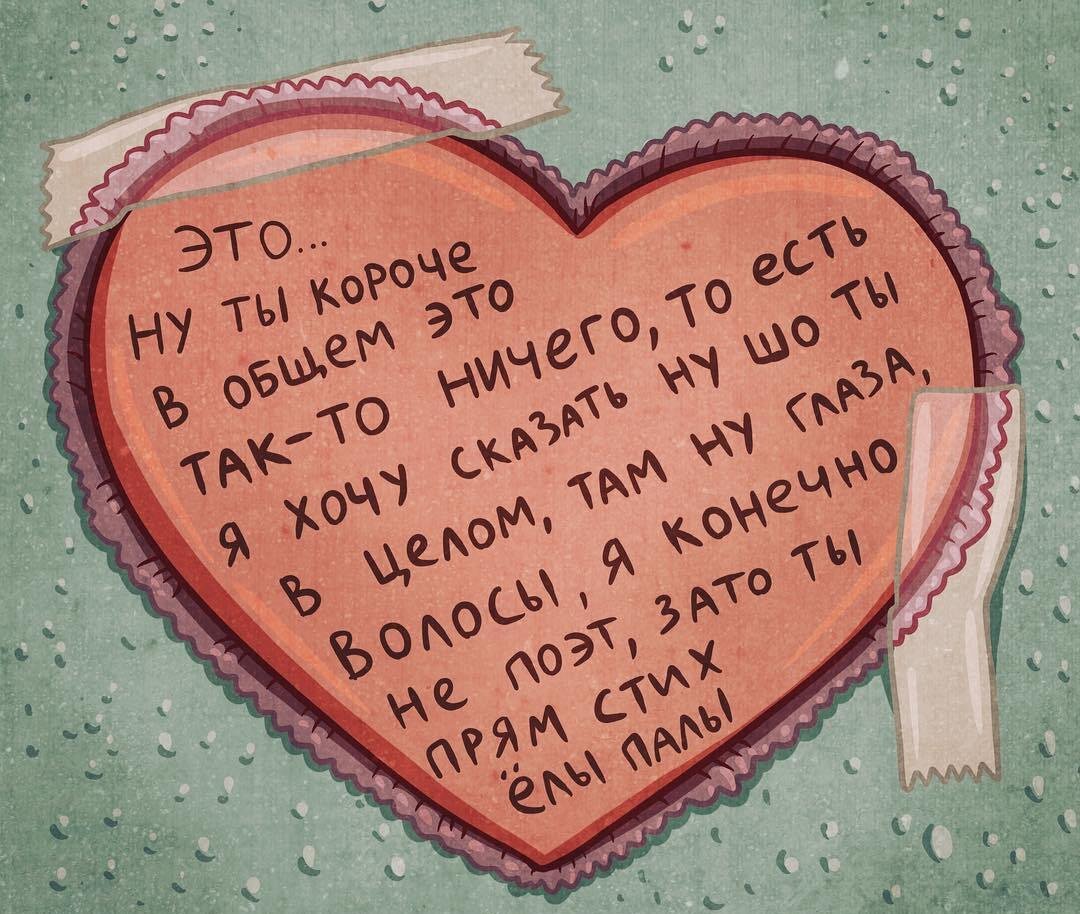 ЭТО...
НУ ТЫ КОРОЧЕ
В ОБЩЕМ ЭТО
ТАК-ТО НИЧЕГО, ТО ЕСТЬ
Я ХОЧУ СКАЗАТЬ НУ ШО ТЫ
В ЦЕЛОМ, ТАМ НУ ГЛАЗА,
ВОЛОСЫ, Я КОНЕЧНО
НЕ ПОЭТ, ЗАТО ТЫ
ПРЯМ СТИХ
ЁЛЫ ПАЛЫ